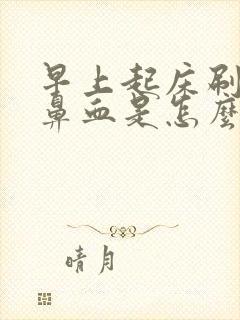 早上起床刷
鼻血是怎麼
晴月